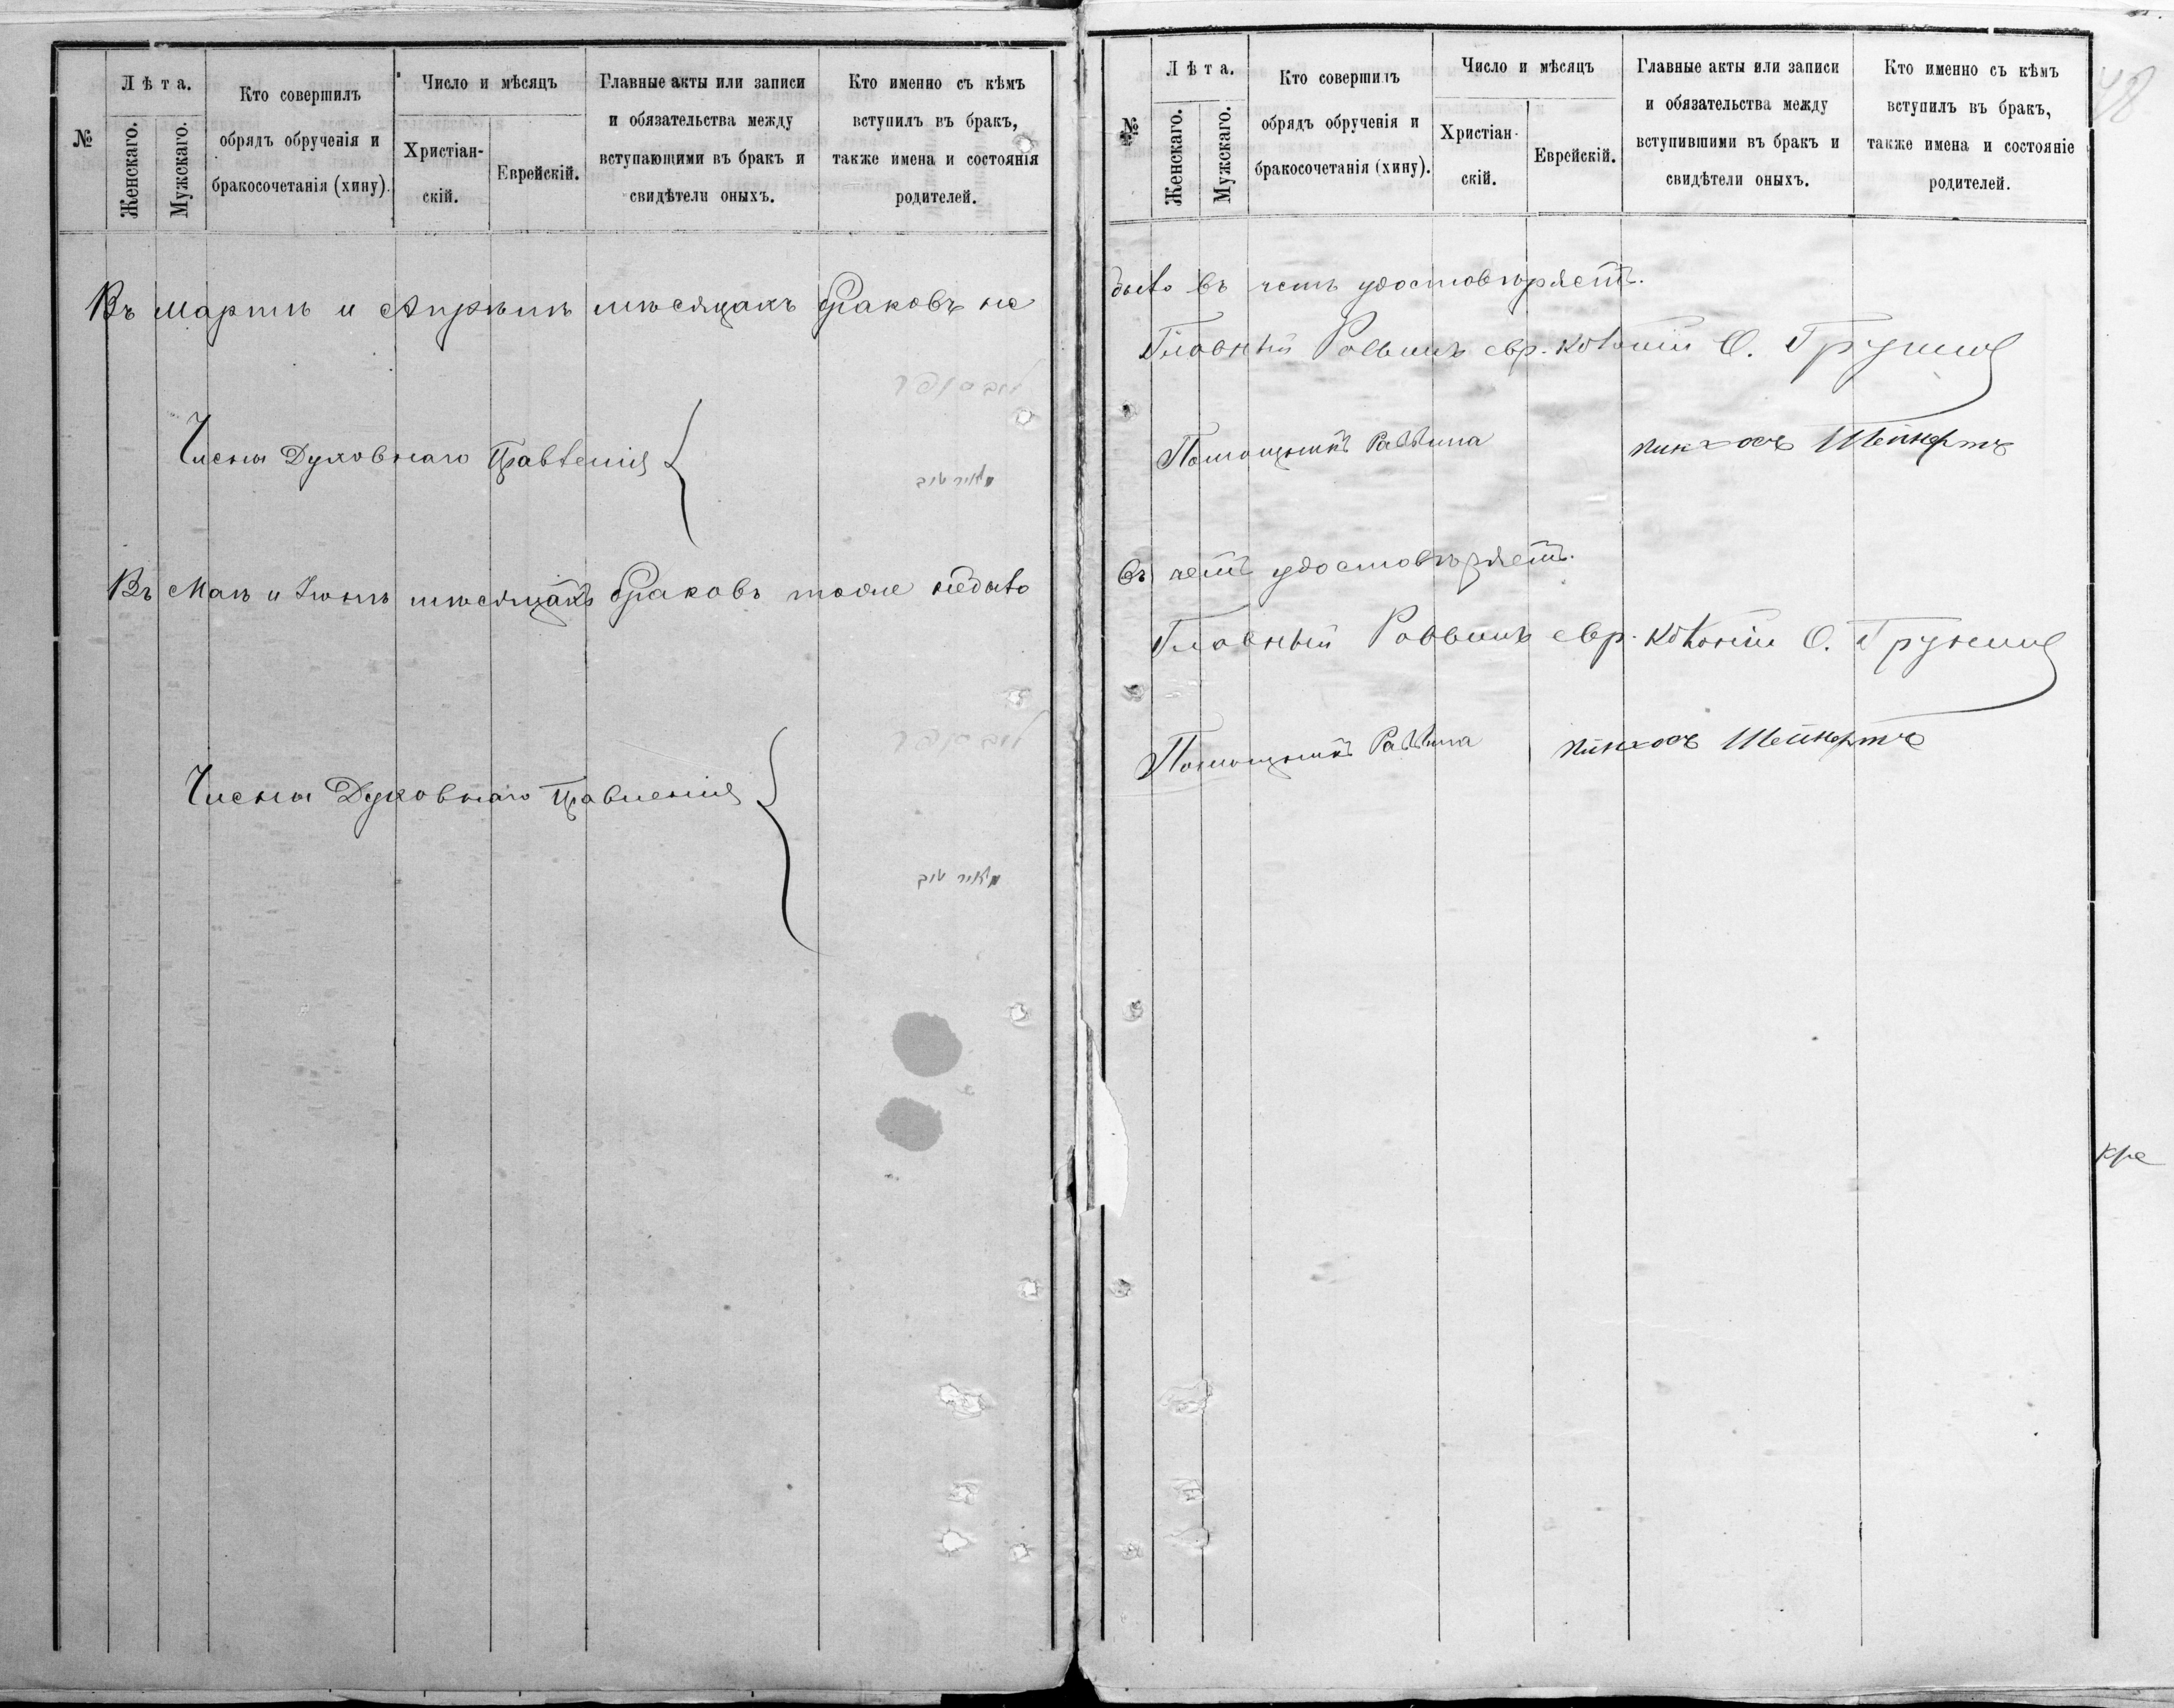 №
Лѣта.
Женскаго.
Мужскаго.
Кто совершилъ
обрядъ обрученія и
бракосочетанія (хину).
Число и мѣсяцъ
Христіан-
скій.
Еврейскій.
Главные акты или записи
и обязательства между
вступающими въ бракъ и
свидѣтели оныхъ.
Кто именно съ кѣмъ
вступилъ въ бракъ,
также имена и состоянія
родителей.
Въ Мартѣ и Апрѣлѣ мѣсяцахъ браковъ не
Члены Духовнаго Правленія
Въ Маѣ и Іюнѣ мѣсяцахъ браковъ тоже небыло
Члены Духовнаго Правленія
48
№
Лѣта.
Женскаго.
Мужскаго.
Кто совершилъ
обрядъ обрученія и
бракосочетанія (хину).
Число и мѣсяцъ
Христіан-
скій.
Еврейскій.
Главные акты или записи
и обязательства между
вступившими въ бракъ и
свидѣтели оныхъ.
Кто именно съ кѣмъ
вступилъ въ бракъ,
также имена и состояніе
родителей.
было въ чемъ удостовѣряетъ.
Главный Раввинъ евр. колоніи О.
Помощникъ Раввина Пинхосъ
въ чемъ удостовѣряетъ.
Главный Раввинъ евр. колоніи О.
Помощникъ Раввина Пинхосъ
кре